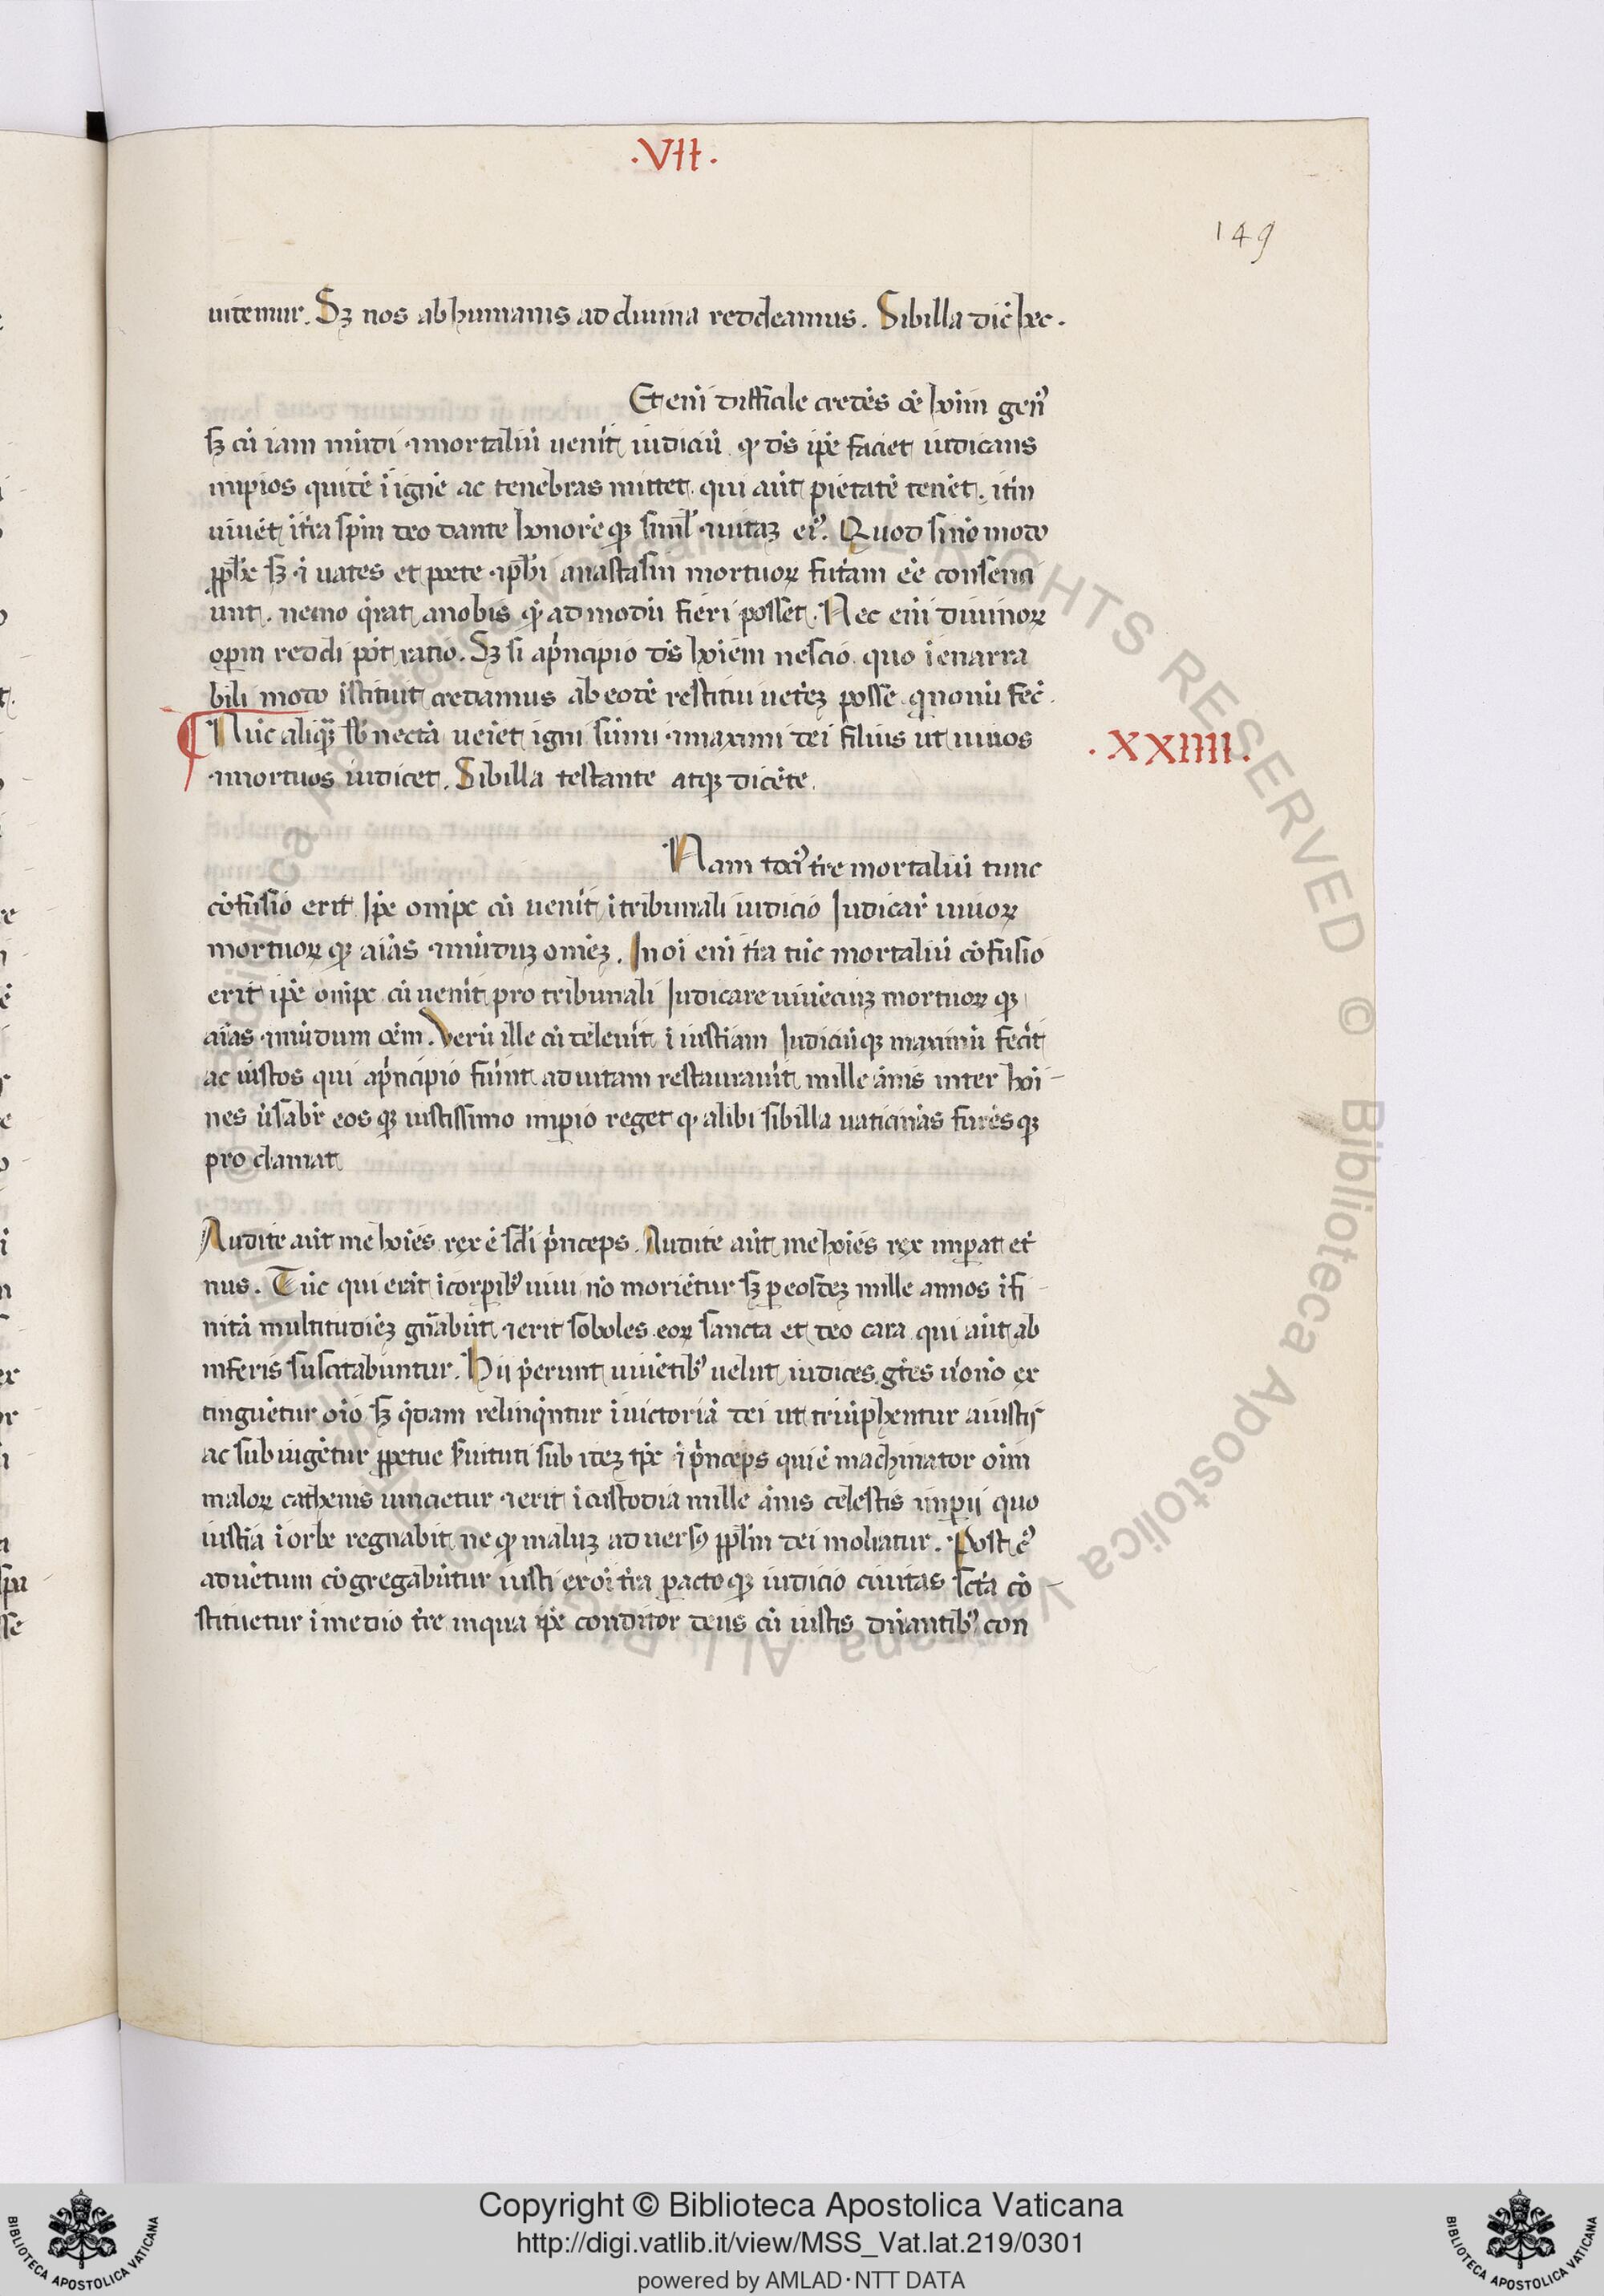 .VII.
149
uitemur. Sꝫ nos ab humanis ad diuina reddeamus. Sibilla dic̄ hec.
Et eni᷒ difficile credēs oē hoīm gen᷒
sꝫ cū iam mūdi ⁊ mortaliū ueni᷒t iudiciū qđ d̄s ip̄e faciet iudicans
impios quidē ī ignē ac tenebras mittet. qui aūt pietatē tenēt. it̄m
uiuēt ī t̄ra sp̄m deo dante honorē qꝫ siml᷒ ⁊ uitaꝫ ei᷒. Quod si nō modo
ꝓph̄e sꝫ ⁊ uates et poete ⁊ ph̄i anastasin mortuoꝝ fut̄am eē conseng
unt. nemo q̄rat a nobis q̄ ad modū fieri posset. Nec eni᷒ diuinoꝝ
oꝑm reddi pōt ratio. Sꝫ si a p̄ncipio d̄s hoīem nescio quo īenarra
bili modo īstituit credamus ab eodē restitui ueteꝝ posse q̄ nouū fec̄.
Nūc aliq̄ sb̄nectā ueīet igni᷒ sūmi ⁊ maximi dei filius ut uiuos
.XXIIII.
⁊ mortuos iudicet. Sibilla testante atqꝫ dicēte.
Nam toci᷒ t̄re mortaliū tunc
cōfusio erit Ip̄e om̄pc̄ cū uenīt ī tribunali iudicio Iudicar̄ uiuoꝝ
mortuoꝝ qꝫ aīas ⁊ mūduꝫ om̄eꝫ. In oī eni᷒ t̄ra tūc mortaliū cōfusio
erit ip̄e om̄pc̄ cū uenīt pro tribunali Iudicare uiuēciuꝫ mortuoꝝ qꝫ
aīas ⁊ mūdum oēm. Verū ille cū deleuīt īiustīam Iudiciūqꝫ maximū fecīt
ac iūstos qui a p̄ncipio fuīnt ad uitam restaurauīt mille ānis inter hoī
nes ūsabr̄ eos qꝫ iustissimo imꝑio reget qđ alibi sibilla uaticinās furēsqꝫ
proclamat
Audite aūt me hoīes rex ē sc̄l̄i p̄nceps. Audite aūt me hoīes rex imꝑat et̄
nus. Tūc qui erūt ī corꝑib᷒ uiui nō moriētur sꝫ ꝑ eosdeꝫ mille annos īfi
nitā multitudīeꝫ gn̄abūt ⁊ erit soboles eoꝝ sancta et deo cara qui aūt ab
inferis suscitabuntur. Hii p̄erunt uiuētib᷒ uelut iudices. gēntes ūo nō ex
tinguētur oīo sꝫ q̄dam relinq̄ntur ī uictoriā dei ut triūphentur a iustis
ac subiugētur ꝑpetue ẜuituti sub ideꝫ tp̄e ⁊ p̄nceps qui ē machinator oīm
maloꝝ cathenis uincietur ⁊ erit ī custodia mille ānis celestis imꝑii quo
iustīa ī orbe regnabit ne qđ maluꝫ aduers᷒ ppl̄m dei moliatur. Post c᷒
aduētum cōgregabūtur iusti ex oī t̄ra ꝑacto qꝫ iudicio ciuitas sc̄ta cō
stituetur ī medio t̄re in qua ip̄e conditor deus cū iustis dn̄antib᷒ con
Copyright © Biblioteca Apostolica Vaticana
http://digi.vatlib.it/view/MSS_Vat.lat.219/0301
powered by AMLAD·NTT DATA